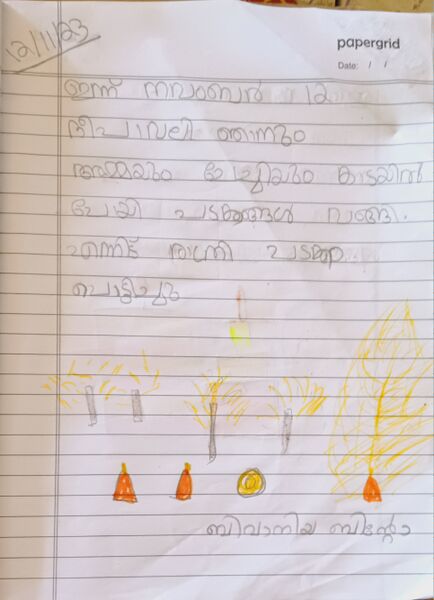 12/11/23
papergrid
Date: / /
ഇന്ന് നവംബർ 12
ദീപാവലി ഞാനും
അമ്മയും ചേച്ചിയും കടയിൽ
പോയി പടക്കങ്ങൾ വാങ്ങി.
എന്നിട്ട് രാത്രി പടക്കം
പൊട്ടിച്ചു
ബിന്റോ